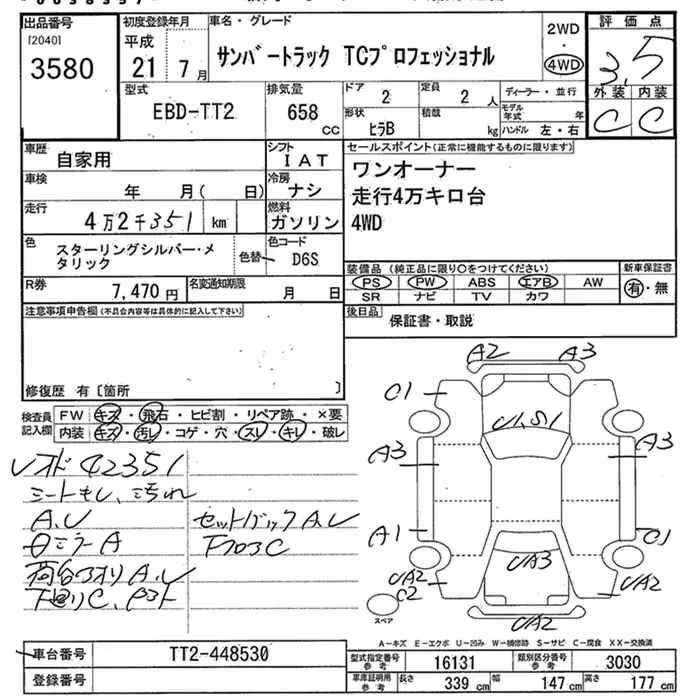 出品番号
[2040]
3580
初度登録年月
平成
21 7 月
車名・グレード
サンバートラック TCプロフェッショナル
2WD
・
4WD
評価点
3.5
外装 内装
C C
型式
EBD-TT2
排気量
658 cc
ドア
2
定員
2 人
形状
ヒラB
積載
kg
ディーラー・並行
モデル年式 年
ハンドル 左・右
車歴
自家用
シフト
I A T
車検
年 月( 日)
冷房
ナシ
走行
4万2千351 km
燃料
ガソリン
色
スターリングシルバー・メタリック
色替
色コード
D6S
R券
7,470 円
名変通知期限
月 日
セールスポイント(正常に機能するものに限ります)
ワンオーナー
走行4万キロ台
4WD
装備品(純正品に限り○をつけてください)
PS PW ABS エアB AW
SR ナビ TV カワ
新車保証書
有・無
後日品
保証書・取説
注意事項申告欄(不具合内容等は具体的に記入して下さい)
修復歴 有[箇所 ]
検査員記入欄
FW キズ・飛石・ヒビ割・リペア跡・×要
内装 キズ・汚レ・コゲ・穴・スレ・キレ・破レ
42351
A.U
セットバックA.U
A
下フロC
荷台アオリA.U
下廻りC、
A2 A3
C1
U1,S1
A3 A3
A1 C1
UA2
C2
UA3
UA2
UA2
スペア
A-キズ E-エクボ U-凹み W-補修跡 S-サビ C-腐食 XX-交換済
車台番号
TT2-448530
登録番号
型式指定番号 参考
16131
類別区分番号 参考
3030
車庫証明用 参考
長さ 339 cm 幅 147 cm 高さ 177 cm